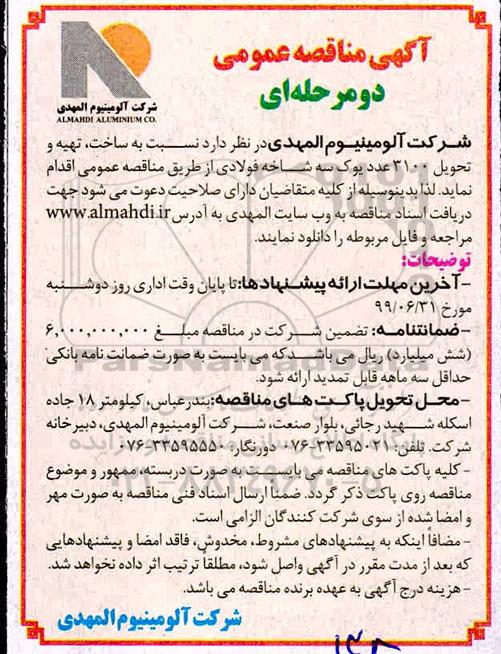 آگهی مناقصه عمومی
دو مرحله‌ای
شرکت آلومینیوم المهدی
ALMAHDI ALUMINIUM CO.
شرکت آلومینیوم المهدی در نظر دارد نسبت به ساخت، تهیه و
تحویل ۳۱۰۰ عدد یوک سه شاخه فولادی از طریق مناقصه عمومی اقدام
نماید. لذا بدینوسیله از کلیه متقاضیان دارای صلاحیت دعوت می شود جهت
دریافت اسناد مناقصه به وب سایت المهدی به آدرس www.almahdi.ir
مراجعه و فایل مربوطه را دانلود نمایند.
توضیحات:
-آخرین مهلت ارائه پیشنهادها: تا پایان وقت اداری روز دوشنبه
مورخ ۹۹/۰۶/۳۱
-ضمانتنامه: تضمین شرکت در مناقصه مبلغ ۶,۰۰۰,۰۰۰,۰۰۰
(شش میلیارد) ریال می باشد که می بایست به صورت ضمانت نامه بانکی
حداقل سه ماهه قابل تمدید ارائه شود.
-محل تحویل پاکت های مناقصه: بندرعباس، کیلومتر ۱۸ جاده
اسکله شهید رجائی، بلوار صنعت، شرکت آلومینیوم المهدی، دبیرخانه
شرکت. تلفن: ۳۳۵۹۵۰۲۱-۰۷۶ دورنگار: ۳۳۵۹۵۵۵۰-۰۷۶
- کلیه پاکت های مناقصه می بایست به صورت دربسته، ممهور و موضوع
مناقصه روی پاکت ذکر گردد. ضمنا ارسال اسناد فنی مناقصه به صورت مهر
و امضا شده از سوی شرکت کنندگان الزامی است.
- مضافاً اینکه به پیشنهادهای مشروط، مخدوش، فاقد امضا و پیشنهادهایی
که بعد از مدت مقرر در آگهی واصل شود، مطلقاً ترتیب اثر داده نخواهد شد.
- هزینه درج آگهی به عهده برنده مناقصه می باشد.
شرکت آلومینیوم المهدی